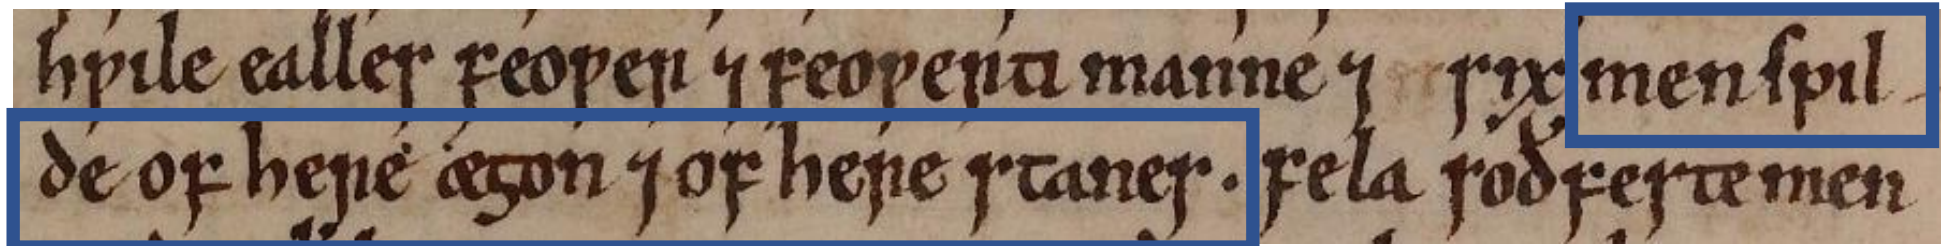 hƿile ealles feoƿer ⁊ feoƿerti manne ⁊ six men spil-
de of here ægon ⁊ of here stanes. fela soðfeste men